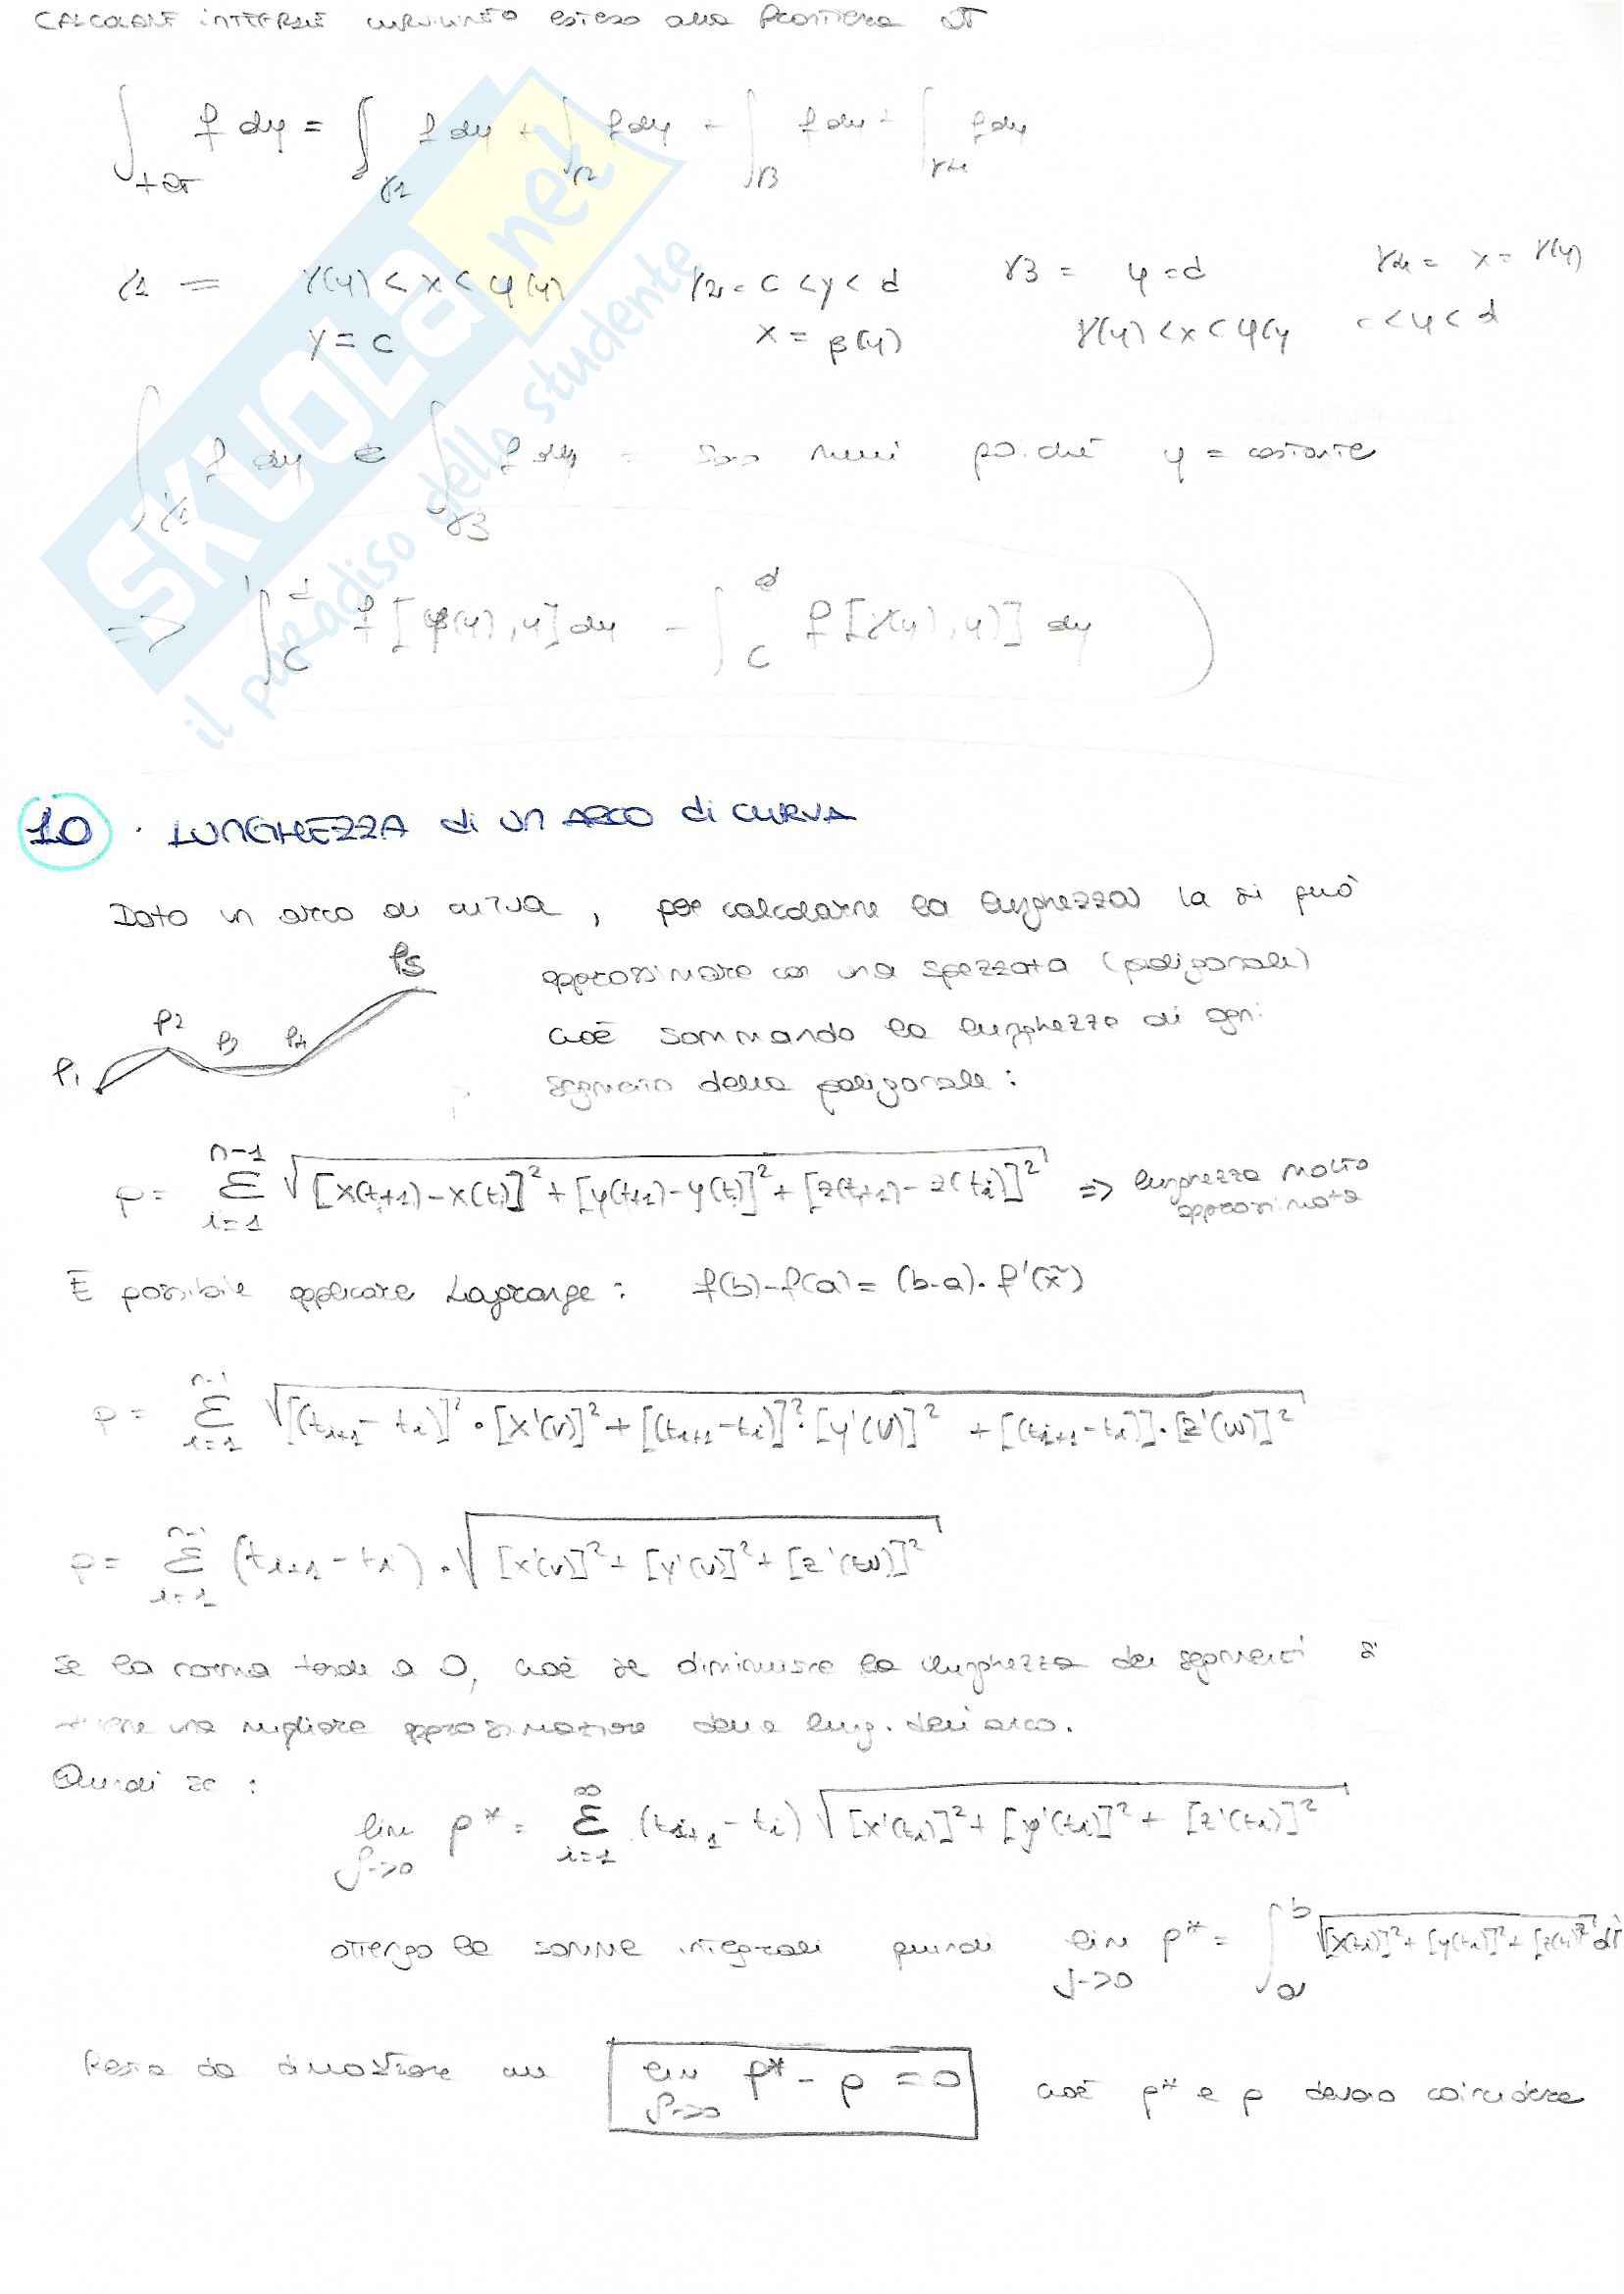 CALCOLARE INTEGRALE CURVILINEO esteso alla frontiera ∂T
∫+∂T f dy = ∫γ1 f dy + ∫γ2 f dy + ∫γ3 f dy + ∫γ4 f dy
γ1 = γ(y) < x < φ(y) γ2 = c < y < d γ3 = y = d γ4 = x = γ(y)
y = c x = β(y) γ(y) < x < φ(y c < y < d
∫γ1 f dy e ∫γ3 f dy = sono nulli poiché y = costante
=> ∫c^d f [φ(y), y] dy - ∫c^d f [γ(y), y)] dy
SKUOLA.net
il paradiso dello studente
10 . LUNGHEZZA di UN ARCO di CURVA
Dato un arco di curva, per calcolarne la lunghezza la si può
P5
approssimare con una spezzata (poligonale)
P2 P3 P4
cioè sommando la lunghezza di ogni
P1
segmento della poligonale:
p = Σ i=1 n-1 √[x(ti+1) - x(ti)]² + [y(ti+1) - y(ti)]² + [z(ti+1) - z(ti)]² => lunghezza molto
approssimata
È possibile applicare Lagrange: f(b) - f(a) = (b-a) · f'(x̃)
p = Σ i=1 n-1 √[(ti+1 - ti)]² · [x'(v)]² + [(ti+1 - ti)]² · [y'(U)]² + [(ti+1 - ti)] · [z'(w)]²
p = Σ i=1 n-1 (ti+1 - ti) · √[x'(v)]² + [y'(U)]² + [z'(w)]²
Se la norma tende a 0, cioè se diminuisce la lunghezza dei segmenti si
ottiene una migliore approssimazione della lung. dell'arco.
Quindi se :
lim δ->0 p* = Σ i=1 ∞ (ti+1 - ti) √[x'(ti)]² + [y'(ti)]² + [z'(ti)]²
ottengo le somme integrali quindi lim δ->0 p* = ∫a^b √[x(ti)]² + [y(ti)]² + [z(ti)]² dt
Resta da dimostrare che lim δ->0 p* - p = 0 cioè p* e p devono coincidere